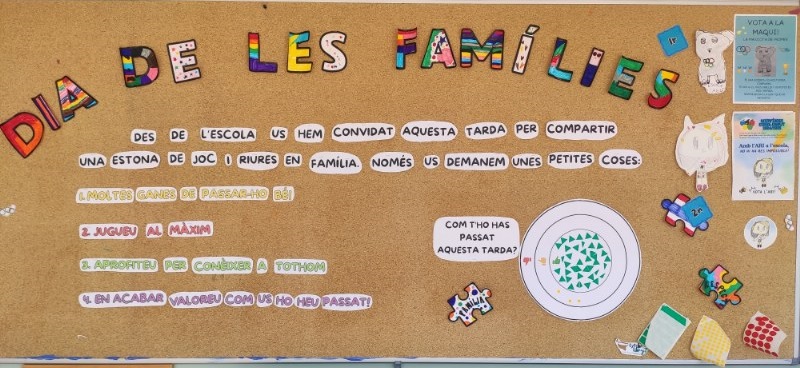 DIA DE LES FAMÍLIES
DES DE L'ESCOLA US HEM CONVIDAT AQUESTA TARDA PER COMPARTIR
UNA ESTONA DE JOC I RIURES EN FAMÍLIA. NOMÉS US DEMANEM UNES PETITES COSES:
1. MOLTES GANES DE PASSAR-HO BÉ!
2. JUGUEU AL MÀXIM
3. APROFITEU PER CONÈIXER A TOTHOM
4. EN ACABAR VALOREU COM US HO HEU PASSAT!
COM T'HO HAS
PASSAT
AQUESTA TARDA?
FAMÍLIA
1r
2n
VOTA A LA
MAQUI!